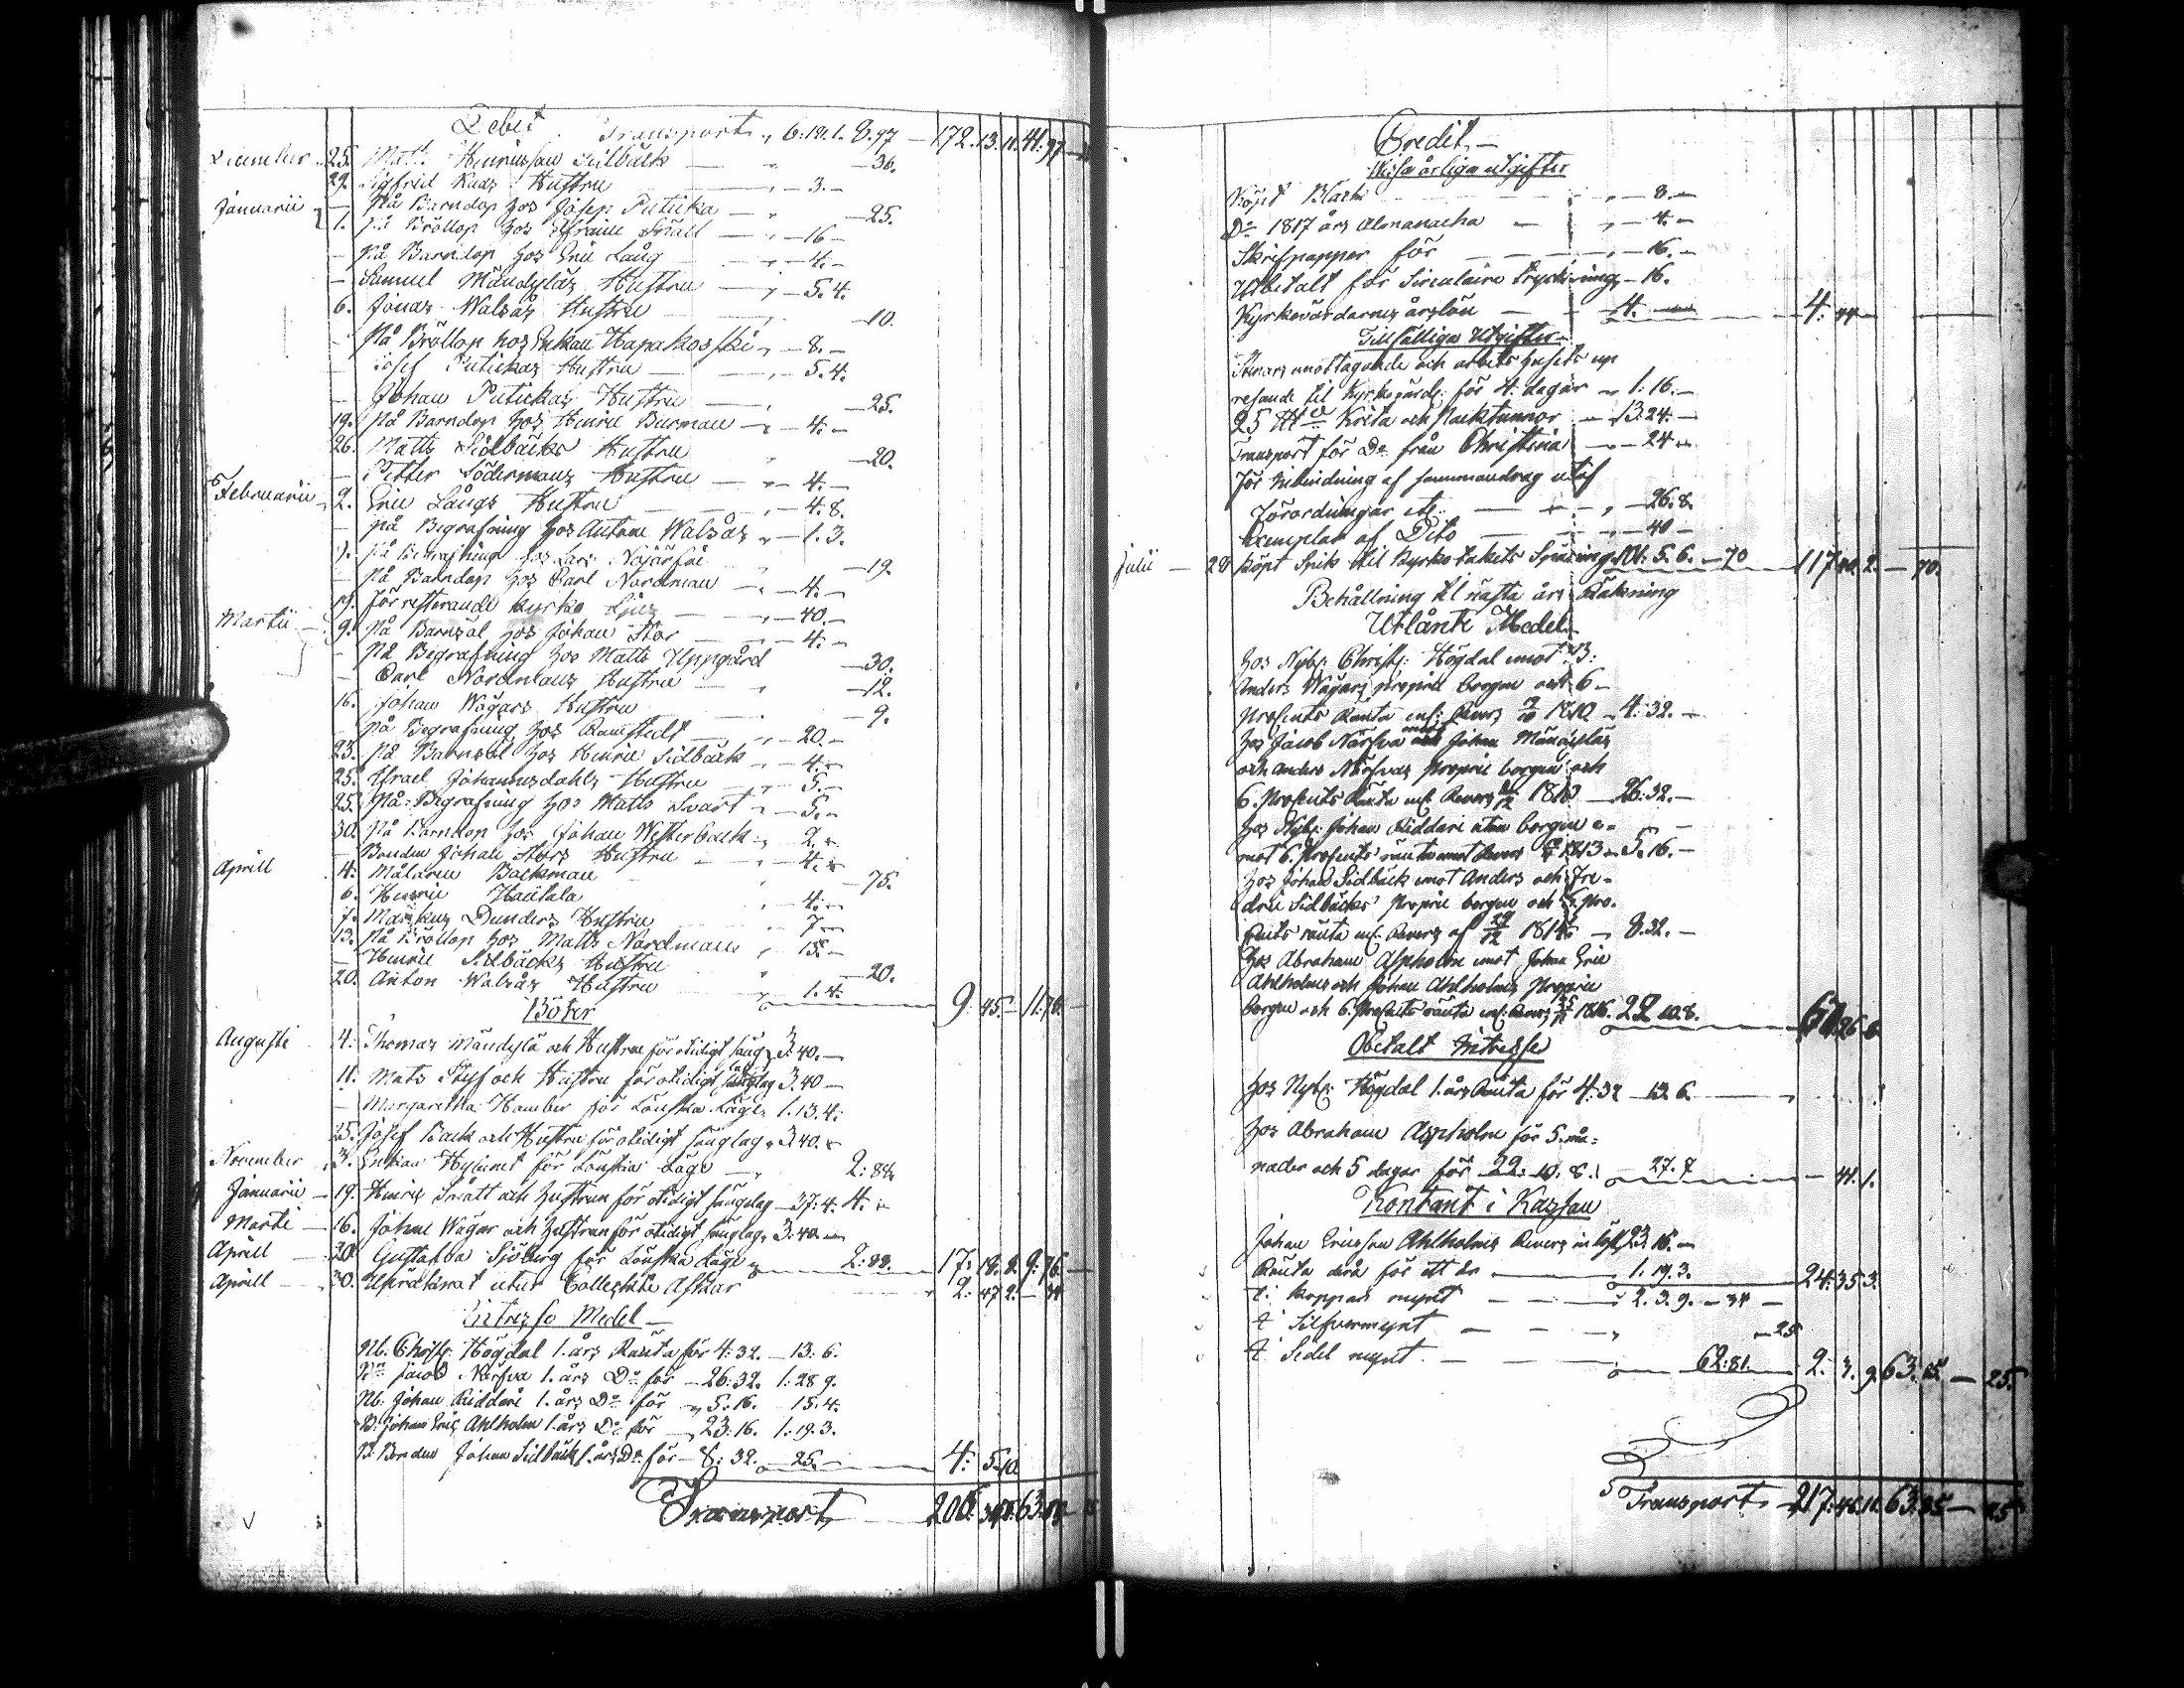 Debet
Transport „ 6:18.1. 8.97 — 172.13.11.41.97
December 25. Matts Henricsson Sidbäck — „ — 36.
29. Sigfrid Kuds Hustru — „ — 3. —
Januarii — På Barndop hos Josep Puticka — „ — 25.
1. På Bröllop hos Efraim Smått — „ — 16 —
— På Barndop hos Eric Lång — „ — 4. —
— Samuel Mändyläs Hustru — „ — 5. 4.
6. Jonas Walsås Hustru — „ — 10.
— På Bröllop hos Enkan Hapakoski „ — 8. —
— Josef Putickas Hustru — „ — 5. 4.
— Johan Putickas Hustru — „ — 25.
19. På Barndop hos Henric Burman — „ — 4. —
26. Matts Sidbäcks Hustru „ — 20.
— Petter Södermans Hustru — „ — 4. —
Februarii 2. Eric Långs Hustru — „ — 4. 8.
— på Begrafning hos Anton Walsås „ — 1. 3.
på Begrafning hos Lars — 19.
— På Barndop hos Carl Nordman — „ — 4. —
19. För resterande kyrko Ljus — „ — 40. —
Martii 9. På Barnsöl hos Johan Stor — „ — 4. —
— På Begrafning hos Matts Uppgård — 30.
— Carl Nordmans Hustru — „ — 12.
16. Johan Wägars Hustru — 9.
— på Begrafning hos Ramstedt — „ — 20. —
23. På Barnsöl hos Henric Sidbäck „ — 4. —
25. Israel Johannesdahls Hustru „ — 5. —
25. På Begrafning hos Matts Svart „ — 5. —
30. På Barndop hos Johan Westerback „ 2. —
— Bonden Johan Stors Hustru — „ — 4. —
Aprill 4. Målaren Backman — 75.
6. Henric Hautala „ — 4. —
7. Markus Dunders Hustru „ 7 —
13. På Bröllop hos Matts Nordman „ 15. —
— Henric Sidbäcks Hustru „ — 20.
20. Anton Walsås Hustru „ 1. 4. — 9. 45. — 11. 76. —
Böter
Augusti 4. Thomas Mändylä och Hustru för otidigt säng. 3. 40. —
11. Mats Styf och Hustru för otidigt sänglag 3. 40 —
— Margaretha Hamber för Lönska Läge 1. 13. 4.
25. Josef Back och Hustru för otidigt sänglag „ 3. 40. —
November 3. Enkan för Lönska Läge — „ 2: 88
Januarii — 19. Henric Smått och hustrun för otidigt sänglag — 37: 4. 4. —
Marti — 16. Johan Wägar och hustrun för otidigt sänglag „ 3. 40. —
Aprill — 20. Gustafva Sjöberg för Lönska Läge 2: 88. 17. 18. 8. 9: 76. —
Aprill — 30. utur Collecture Askar 2. 47 2. — 34
Intresse Medel —
Nb. Christ. Högdal 1. års Ränta för 4: 32. — 13: 6.
Jacob Närfva 1. års Do för — 26: 32. 1: 28 9.
Nb. Johan Riddare 1. års Do för „ 5. 16. — 15. 4.
Johan Eric Ahlholm 1. års Do för — 23: 16. 1: 19. 3.
Bonden Johan Sidbäck 1. års Do för — 8: 32. — 25. — 4: 5. 10.
Transport 206.
Credit. —
Wissa årliga utgifter
Köpt Bläck „ — 8. —
Do 1817 års Almanacka — „ — 4. —
Skrifpapper för — „ — 16. —
Utbetalt för Circulaire Tryckning „ — 16.
Kyrkovärdarnes årslön — 4. — 4: 44 —
Tillfälliga Utgifter —
emottagande och arbets husets up
resande til Kyrkogård: för 4. dagar „ 1: 16. —
25 Krita och Packtunnor — 13: 24. —
Transport för Do från Christina — „ — 24 —
för inbindning af sammandrag utaf
Förordningar etc. — „ — 26. 8.
Exemplar af Dito — „ — 40 —
Julii — 28 köpt Spik til kyrko takets Spåning 101: 5. 6. — 70 117. 2. — 70.
Behållning til nästa års Räkning
Utlånte Medel
hos Nyb. Christ. Högdal emot
Anders Wägars proprie borgen och 6 —
procents Ränta enl. Revers 1810 — 4: 32. —
hos Jacob Närfva Johan Mändyläs
och Anders Närfvas proprie borgen och
6. procents Ränta enl. Revers 1813 — 26: 32. —
hos Nyb. Johan Riddare utan borgen
mot 6. procents ränta emot Revers 1813 — 5. 16. —
hos Johan Sidbäck emot Anders och Fre-
dric Sidbäcks proprie borgen och 6. pro-
cents ränta enl. Revers af 1814 — 8. 32. —
hos Abraham Aspholm emot Johan Eric
Ahlholms och Johan Ahlholms proprie
borgen och 6. procents ränta enl. Revers 1816. 22. 10. 8. 67. 26. 8.
Obetalt Intresse
hos Nyb. Högdal 1. års Ränta för 4: 32 — 13. 6.
hos Abraham Aspholm för 5. må=
nader och 5 dagar för 22: 10. 8. — 27. 7 — 41. 1.
Kontant i Kassan
Johan Ericsson Ahlholms Revers 23. 16. —
Ränta derå för ett år — 1. 19. 3. 24: 35 3.
i koppar mynt — 2. 3. 9. — 34 —
i Silfvermynt — „ — 25
i Sedel mynt — 62: 81. 2. 3. 9. 63. 15 — 25.
Transport 217: 46. 11. 63: 85 — 25